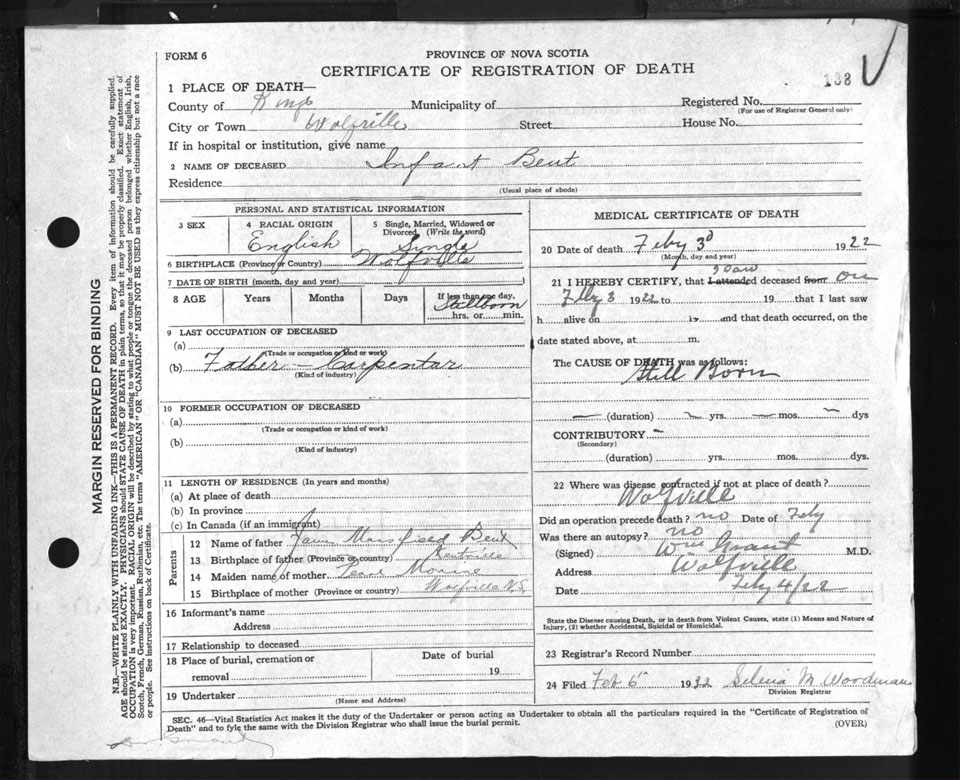 FORM 6
PROVINCE OF NOVA SCOTIA
CERTIFICATE OF REGISTRATION OF DEATH
188
1 PLACE OF DEATH—
County of Kings Municipality of Registered No.
(For use of Registrar General only)
City or Town Wolfville Street House No.
If in hospital or institution, give name
2 NAME OF DECEASED Infant Bent
Residence
(Usual place of abode)
PERSONAL AND STATISTICAL INFORMATION
3 SEX
4 RACIAL ORIGIN
English
5 Single, Married, Widowed or Divorced (Write the word)
Single
6 BIRTHPLACE (Province or Country) Wolfville
7 DATE OF BIRTH (month, day and year)
8 AGE Years Months Days If less than one day,
Stillborn
hrs. or min.
9 LAST OCCUPATION OF DECEASED
(a)
(Trade or occupation or kind or work)
(b) Father Carpentar
(Kind of industry)
10 FORMER OCCUPATION OF DECEASED
(a)
(Trade or occupation or kind of work)
(b)
(Kind of industry)
11 LENGTH OF RESIDENCE (In years and months)
(a) At place of death
(b) In province
(c) In Canada (if an immigrant)
Parents
12 Name of father Mansfield Bent
13 Birthplace of father (Province or country) Kentville
14 Maiden name of mother
15 Birthplace of mother (Province or country) Wolfville N.S.
16 Informant's name
Address
17 Relationship to deceased
18 Place of burial, cremation or removal
Date of burial
19
19 Undertaker
(Name and Address)
MEDICAL CERTIFICATE OF DEATH
20 Date of death Feby 3d 1922
(Month, day and year)
21 I HEREBY CERTIFY, that I attended saw deceased from on
Feby 3 1922 to 19 that I last saw
h alive on 19 and that death occurred, on the
date stated above, at m.
The CAUSE OF DEATH was as follows:
Still Born
(duration) yrs. mos. dys
CONTRIBUTORY
(Secondary)
(duration) yrs. mos. dys.
22 Where was disease contracted if not at place of death?
Wolfville
Did an operation precede death? no Date of Feby
Was there an autopsy? no
(Signed) Wm Grant M.D.
Address Wolfville
Date Feby 4/22
State the Disease causing Death, or in death from Violent Causes, state (1) Means and Nature of
Injury, (2) whether Accidental, Suicidal or Homicidal.
23 Registrar's Record Number
24 Filed Feb 6th 1922 Selina M. Woodman
Division Registrar
SEC. 46—Vital Statistics Act makes it the duty of the Undertaker or person acting as Undertaker to obtain all the particulars required in the "Certificate of Registration of
Death" and to fyle the same with the Division Registrar who shall issue the burial permit.
(OVER)
MARGIN RESERVED FOR BINDING
N.B.—WRITE PLAINLY WITH UNFADING INK—THIS IS A PERMANENT RECORD. Every item of information should be carefully supplied.
AGE should be stated EXACTLY. PHYSICIANS should STATE CAUSE OF DEATH in plain terms, so that it may be properly classified. Exact statement of
OCCUPATION is very important. RACIAL ORIGIN will be described by stating to what people or tongue the deceased person belonged whether English, Irish,
Scotch, French, German, Russian, Ruthenian, etc. The terms "AMERICAN" OR "CANADIAN" MUST NOT BE USED as they express citizenship but not a race
or people. See instructions on back of Certificate.